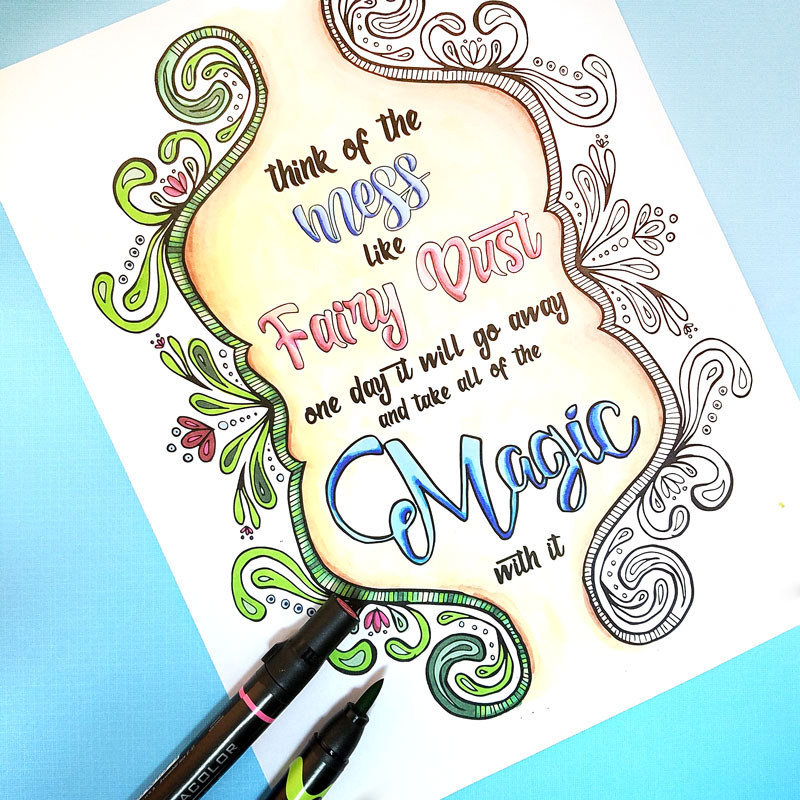 think of the
mess
like
Fairy Dust
one day it will go away
and take all of the
Magic
with it
ACOLOR